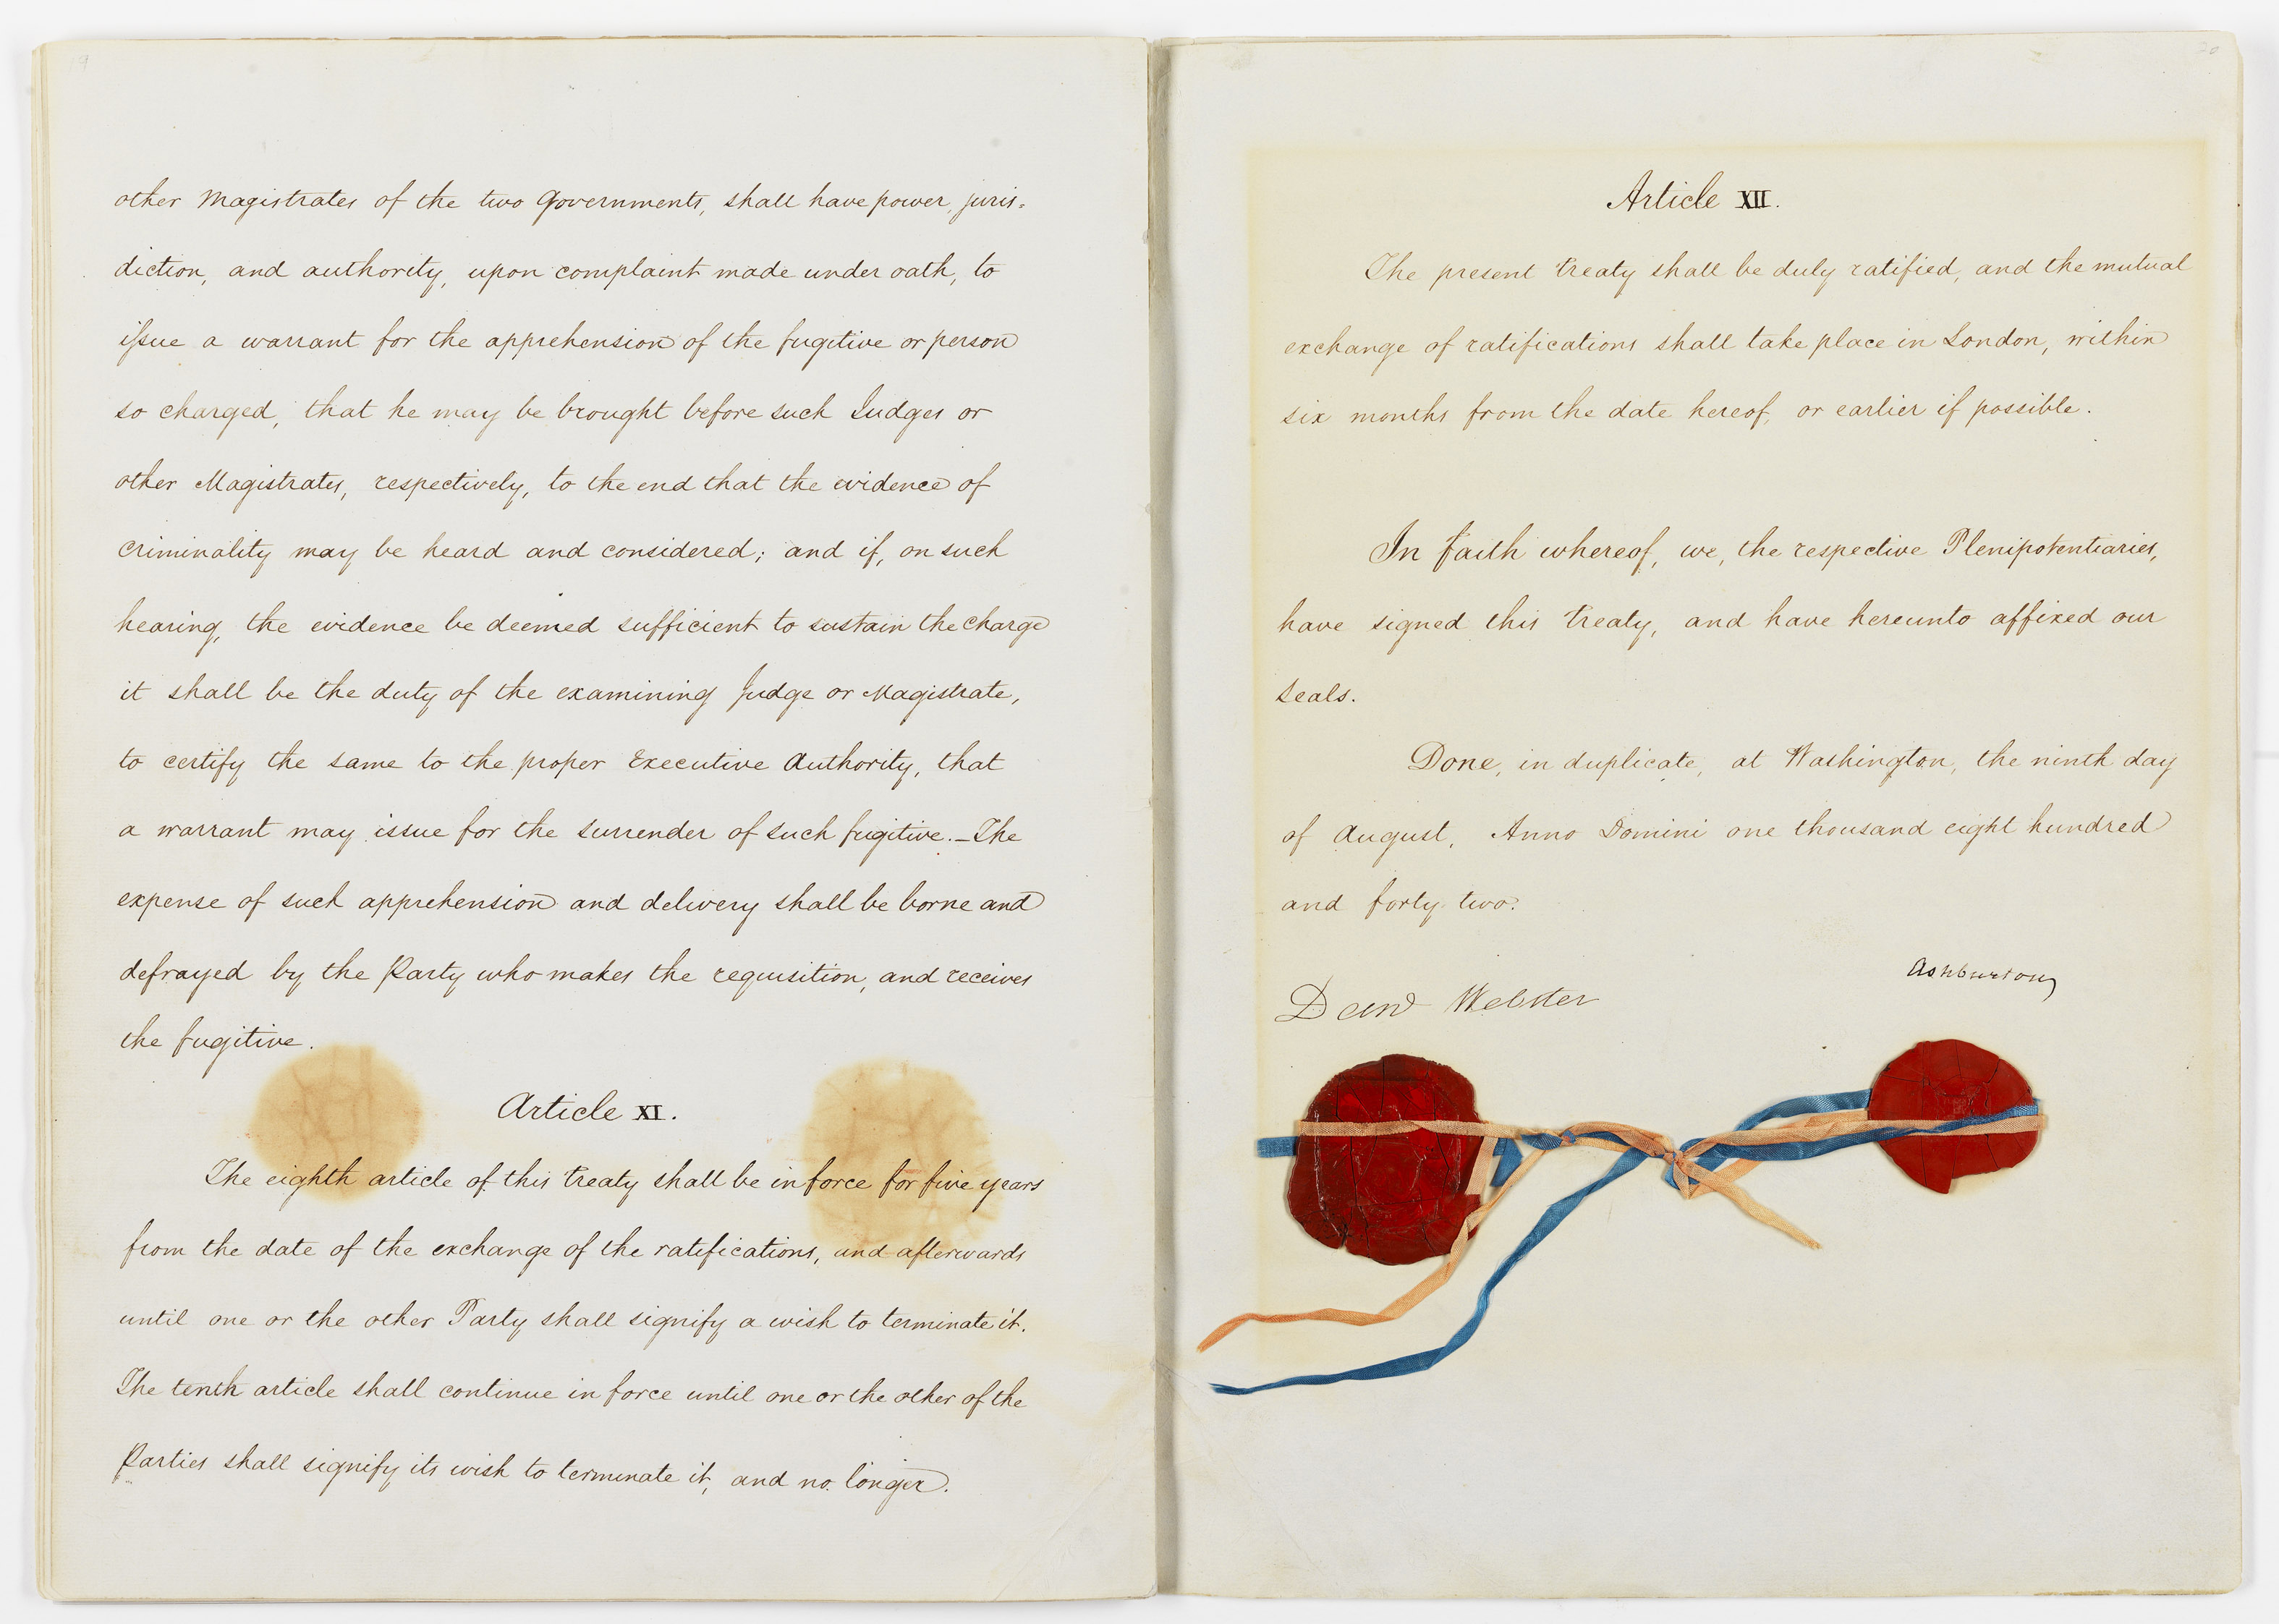 19
other Magistrates of the two Governments, shall have power, juris=
diction, and authority, upon complaint made under oath, to
issue a warrant for the apprehension of the fugitive or person
so charged, that he may be brought before such Judges or
other Magistrates, respectively, to the end that the evidence of
criminality may be heard and considered; and if, on such
hearing, the evidence be deemed sufficient to sustain the charge
it shall be the duty of the examining Judge or Magistrate,
to certify the same to the proper Executive Authority, that
a warrant may issue for the surrender of such fugitive.—The
expense of such apprehension and delivery shall be borne and
defrayed by the Party who makes the requisition, and receives
the fugitive.
Article XI.
The eighth article of this treaty shall be in force for five years
from the date of the exchange of the ratifications, and afterwards
until one or the other Party shall signify a wish to terminate it.
The tenth article shall continue in force until one or the other of the
Parties shall signify its wish to terminate it, and no longer.
20
Article XII.
The present treaty shall be duly ratified, and the mutual
exchange of ratifications shall take place in London, within
six months from the date hereof, or earlier if possible.
In faith whereof, we, the respective Plenipotentiaries,
have signed this treaty, and have hereunto affixed our
seals.
Done, in duplicate, at Washington, the ninth day
of August, Anno Domini one thousand eight hundred
and forty two.
Ashburton
Danl Webster